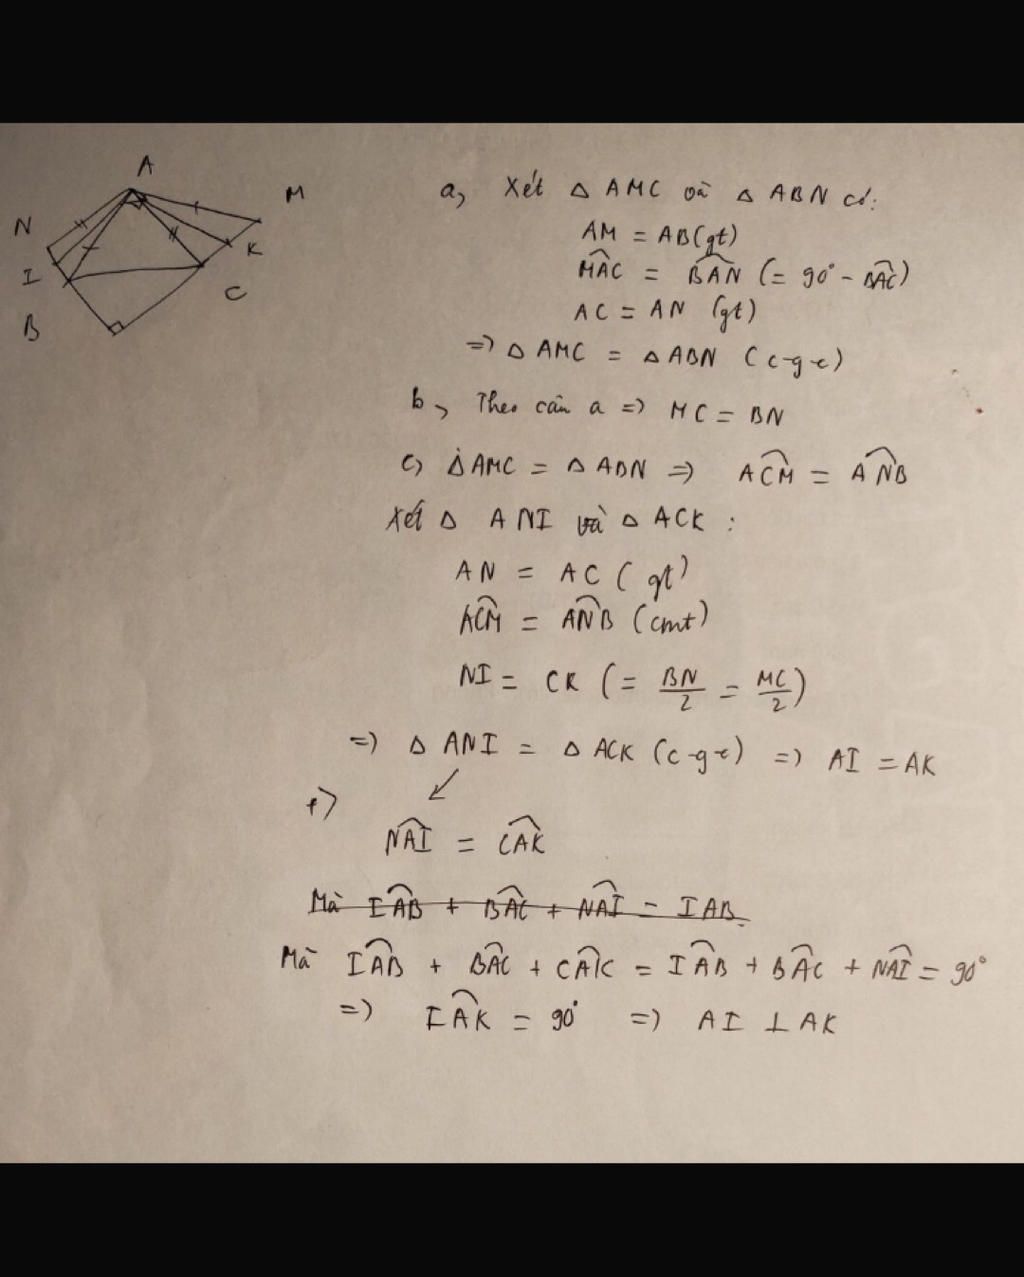 A
M
N
K
I
C
B
a, Xét △ AMC và △ ABN có:
AM = AB (gt)
MAC = BAN (= 90° - BAC)
AC = AN (gt)
=> △ AMC = △ ABN (c-g-c)
b, Theo câu a => MC = BN
c, △ AMC = △ ABN => ACM = ANB
Xét △ ANI và △ ACK :
AN = AC (gt)
ACM = ANB (cmt)
NI = CK (= BN/2 = MC/2)
=> △ ANI = △ ACK (c-g-c) => AI = AK
+)
NAI = CAK
Mà IAB + BAC + NAI = IAB
Mà IAB + BAC + CAK = IAB + BAC + NAI = 90°
=> IAK = 90° => AI ⊥ AK